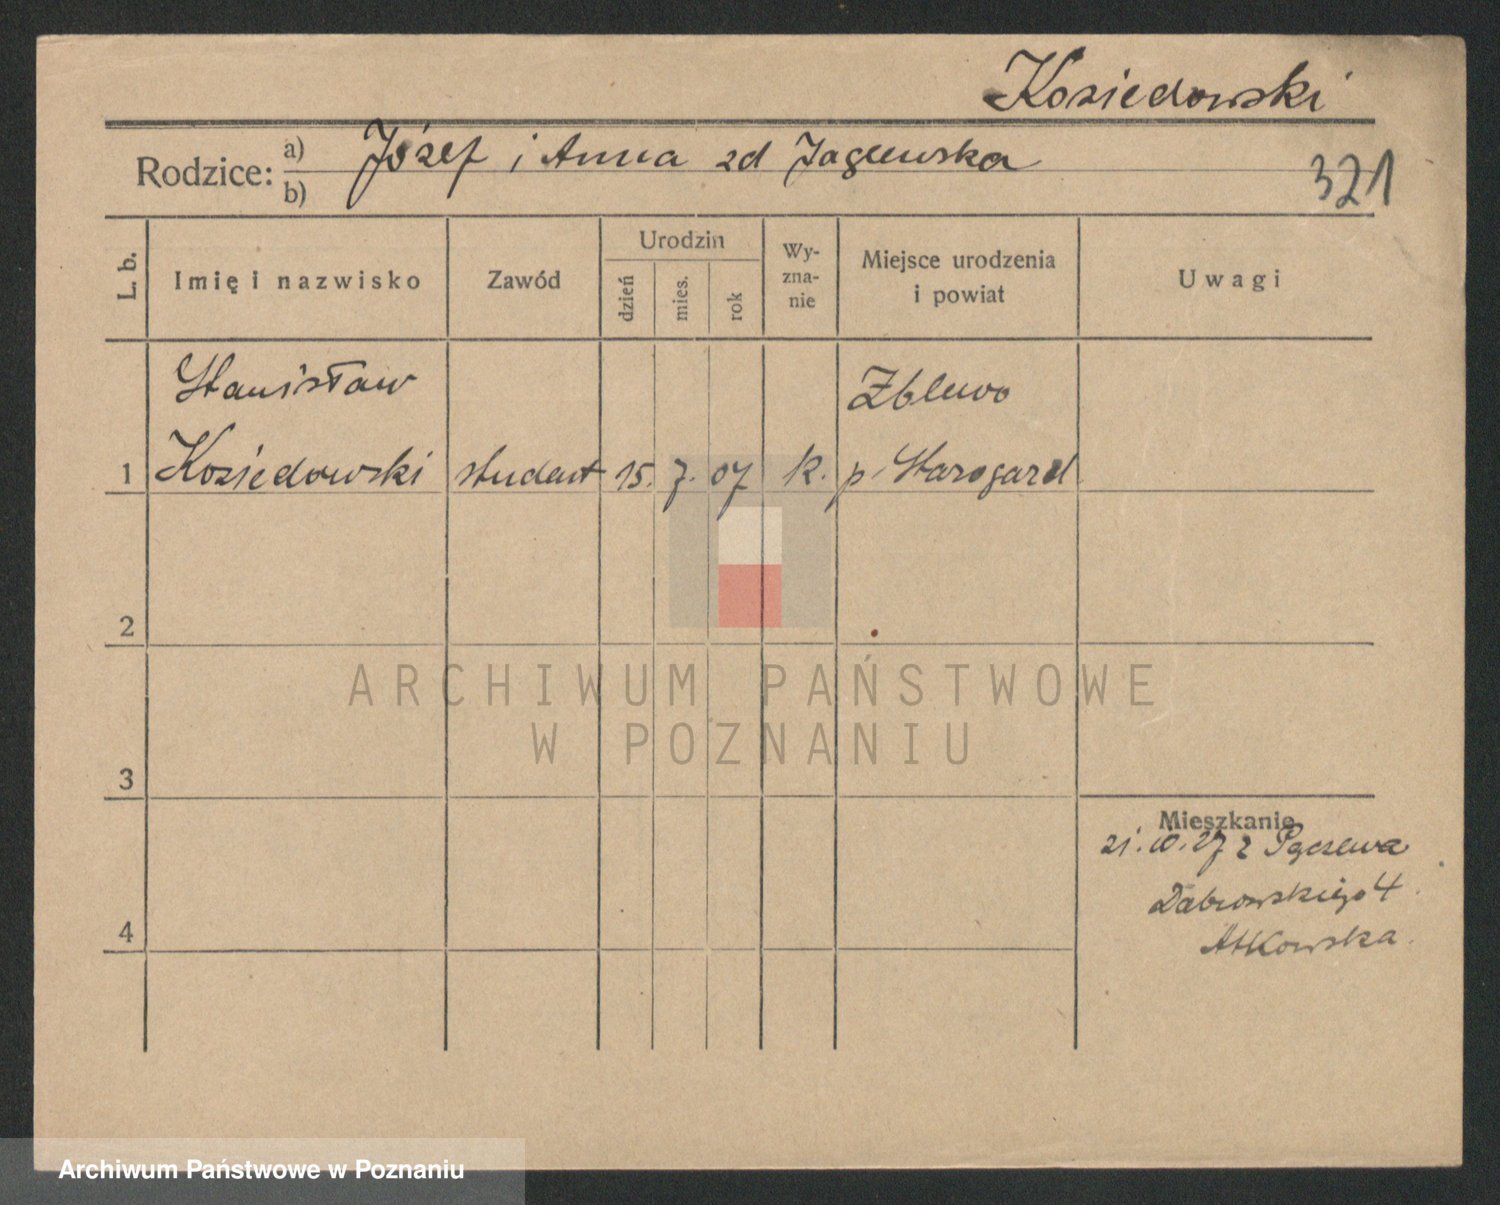 Kosiedowski
Rodzice: a) Józef i Anna zd Jagewska
b)
321
L. b.
Imię i nazwisko
Zawód
Urodzin
dzień
mies.
rok
Wy-
zna-
nie
Miejsce urodzenia
i powiat
Uwagi
Stanisław Zblewo
1 Kosiedowski student 15. 7. 07 k. p. Starogard
2
ARCHIWUM PAŃSTWOWE
W POZNANIU
3
Mieszkanie
21.10.27 z
Dabrowskiego 4
4
Archiwum Państwowe w Poznaniu